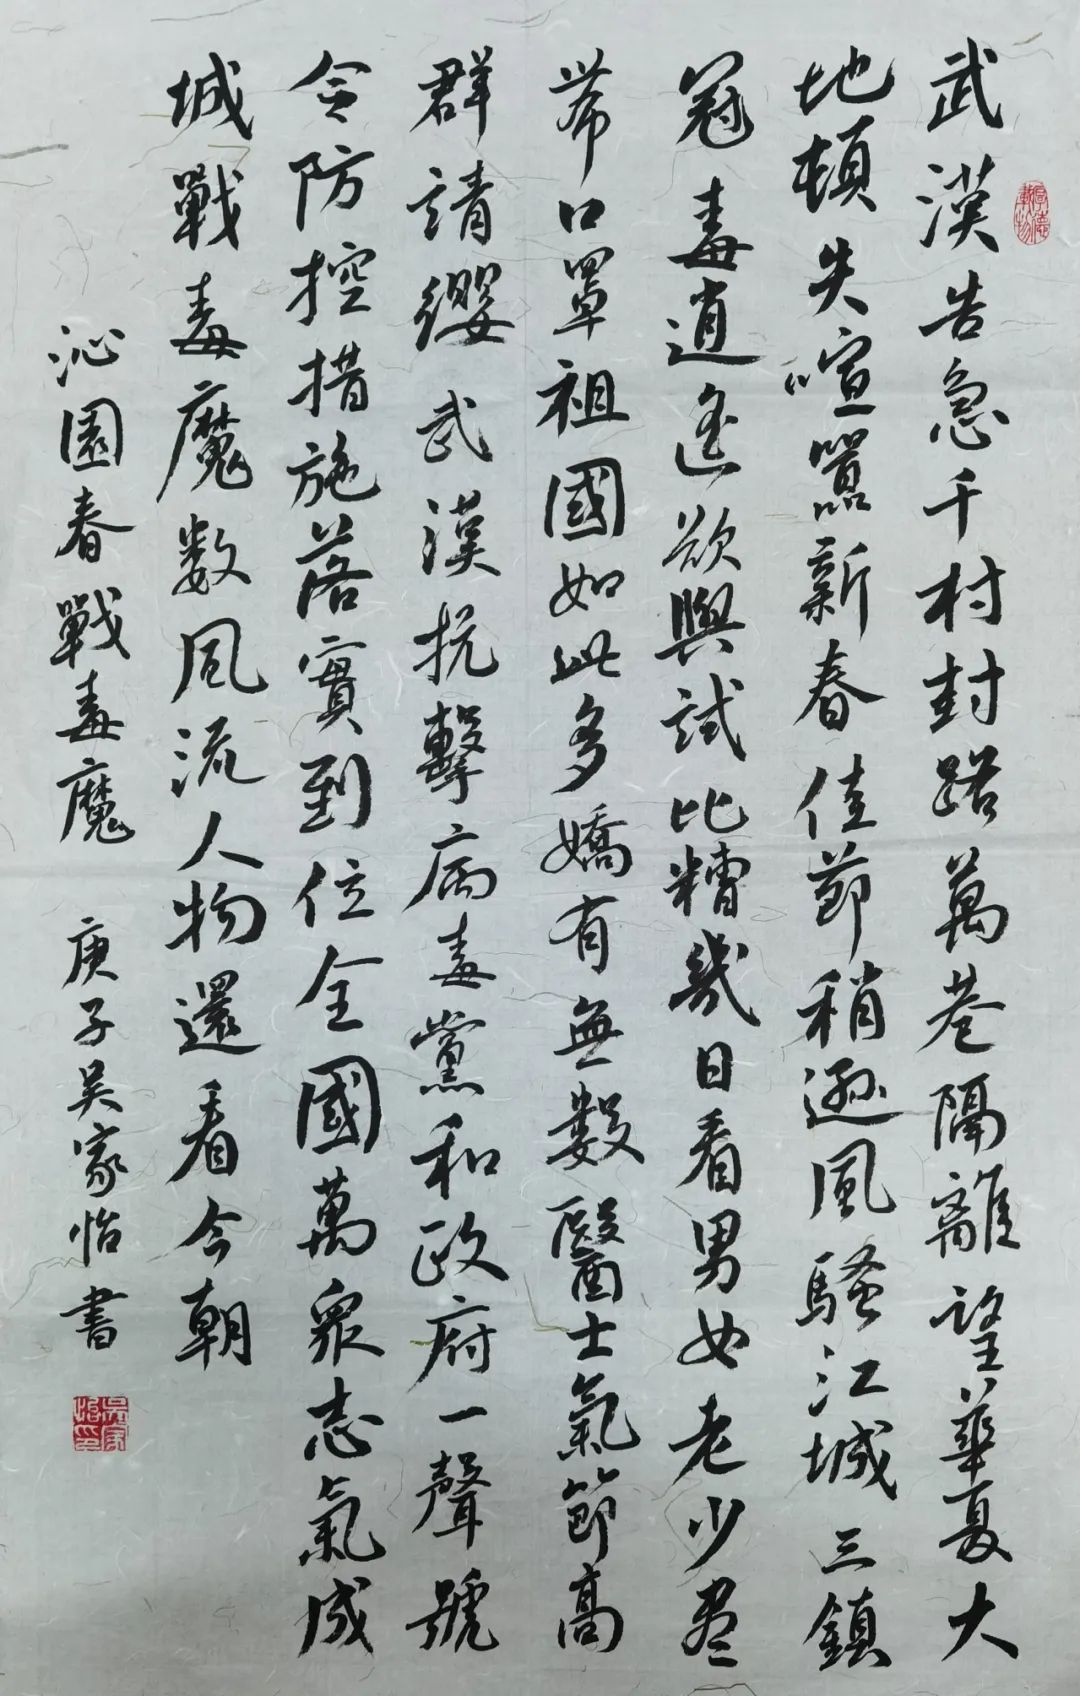 武漢告急千村封路萬巷隔離望華夏大
地頓失喧囂新春佳節稍遜風騷江城三鎮
冠毒逍遙欲與試比糟幾日看男女老少盡
帶口罩祖國如此多嬌有無數醫士氣節高
群請纓武漢抗擊病毒黨和政府一聲號
令防控措施落實到位全國萬衆志氣成
城戰毒魔数風流人物還看今朝
沁園春戰毒魔 庚子吴家怡書
厚德載物
吴家怡印